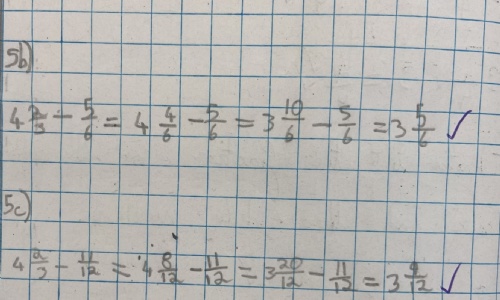 5b)
4 2/3 - 5/6 = 4 4/6 - 5/6 = 3 10/6 - 5/6 = 3 5/6 ✓
5c)
4 2/3 - 11/12 = 4 8/12 - 11/12 = 3 20/12 - 11/12 = 3 9/12 ✓